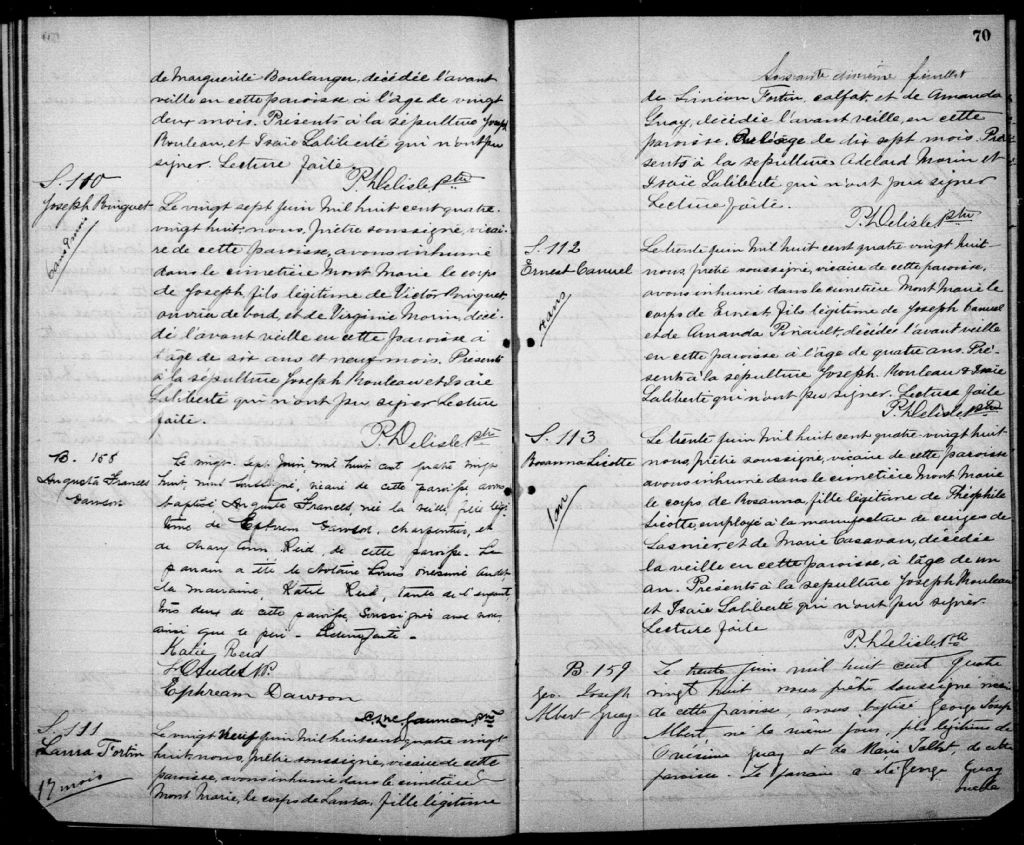 de Marguerite Boulanger, décédée l'avant
veille en cette paroisse à l'âge de vingt
deux mois. Présents à la sépulture Joseph
Rouleau, et Isaïe Laliberté qui n'ont pu
signer. Lecture faite.
Ph Delisle ptre
S. 110
Joseph Binguet
Le vingt sept juin mil huit cent quatre-
vingt huit, nous, prêtre soussigné, vicai-
re de cette paroisse, avons inhumé
dans le cimetière Mont Marie le corps
de Joseph, fils légitime de Victor Binguet
ouvrier de bord, et de Virginie Morin, décé-
dé l'avant veille en cette paroisse à
l'âge de six ans et neuf mois. Présents
à la sépulture Joseph Rouleau et Isaïe
Laliberté qui n'ont pu signer Lecture
faite.
Ph Delisle ptre
B. 158
Augusta Frances
Dawson
Le vingt-sept Juin, mil huit cent quatre vingt
huit, nous soussigné, vicaire de cette paroisse avons
baptisé Augusta Frances, née la veille, fille légi-
time de Ephrem Dawson, charpentier, et
de Mary Ann Reid, de cette paroisse. Le
parrain a été le Notaire Louis Onésime Audet,
la marraine, Katie Reid, tante de l'enfant
tous deux de cette paroisse, soussignés avec nous,
ainsi que le père - Lecture faite -
Katie Reid
L O Audet N.P.
Ephream Dawson
ptre
S. 111
Laura Fortin
17 mois
Le vingt neuf juin mil huit cent quatre vingt
huit nous, prêtre soussigné, vicaire de cette
paroisse, avons inhumé dans le cimetière
Mont Marie, le corps de Laura, fille légitime
70
Soixante dixième feuillet
de Siméon Fortin, calfat, et de Amanda
Guay, décédée l'avant veille, en cette
paroisse, à l'âge de dix sept mois. Pré-
sents à la sépulture Adelard Morin et
Isaïe Laliberté qui n'ont pu signer
Lecture faite.
Ph Delisle ptre
S. 112
Ernest Canuel
4 ans
Le trente juin mil huit cent quatre vingt huit
nous, prêtre soussigné, vicaire de cette paroisse,
avons inhumé dans le cimetière Mont Marie le
corps de Ernest fils légitime de Joseph Canuel
et de Amanda Pinault, décédé l'avant veille
en cette paroisse à l'âge de quatre ans. Pré-
sents à la sépulture Joseph Rouleau & Isaïe
Laliberté qui n'ont pu signer. Lecture faite
Ph Delisle ptre
S. 113
Rosanna Licotte
1 an
Le trente juin mil huit cent quatre-vingt huit
nous, prêtre soussigné, vicaire de cette paroisse
avons inhumé dans le cimetière Mont Marie
le corps de Rosanna, fille légitime de Théophile
Licotte, employé à la manufacture de cierges de
Lasnier, et de Marie Casavan, décédée
la veille en cette paroisse, à l'âge de un
an. Présents à la sépulture Joseph Rouleau
et Isaïe Laliberté qui n'ont pu signer-
Lecture faite
Ph Delisle ptre
B. 159
Geo. Joseph
Albert Guay
Le trente juin mil huit cent quatre
vingt huit nous prêtre soussigné vicaire
de cette paroisse, avons baptisé George Joseph
Albert, né le même jour, fils légitime de
Onésime Guay et de Marie Talbot, de cette
paroisse. Le parrain a été George Guay
oncle